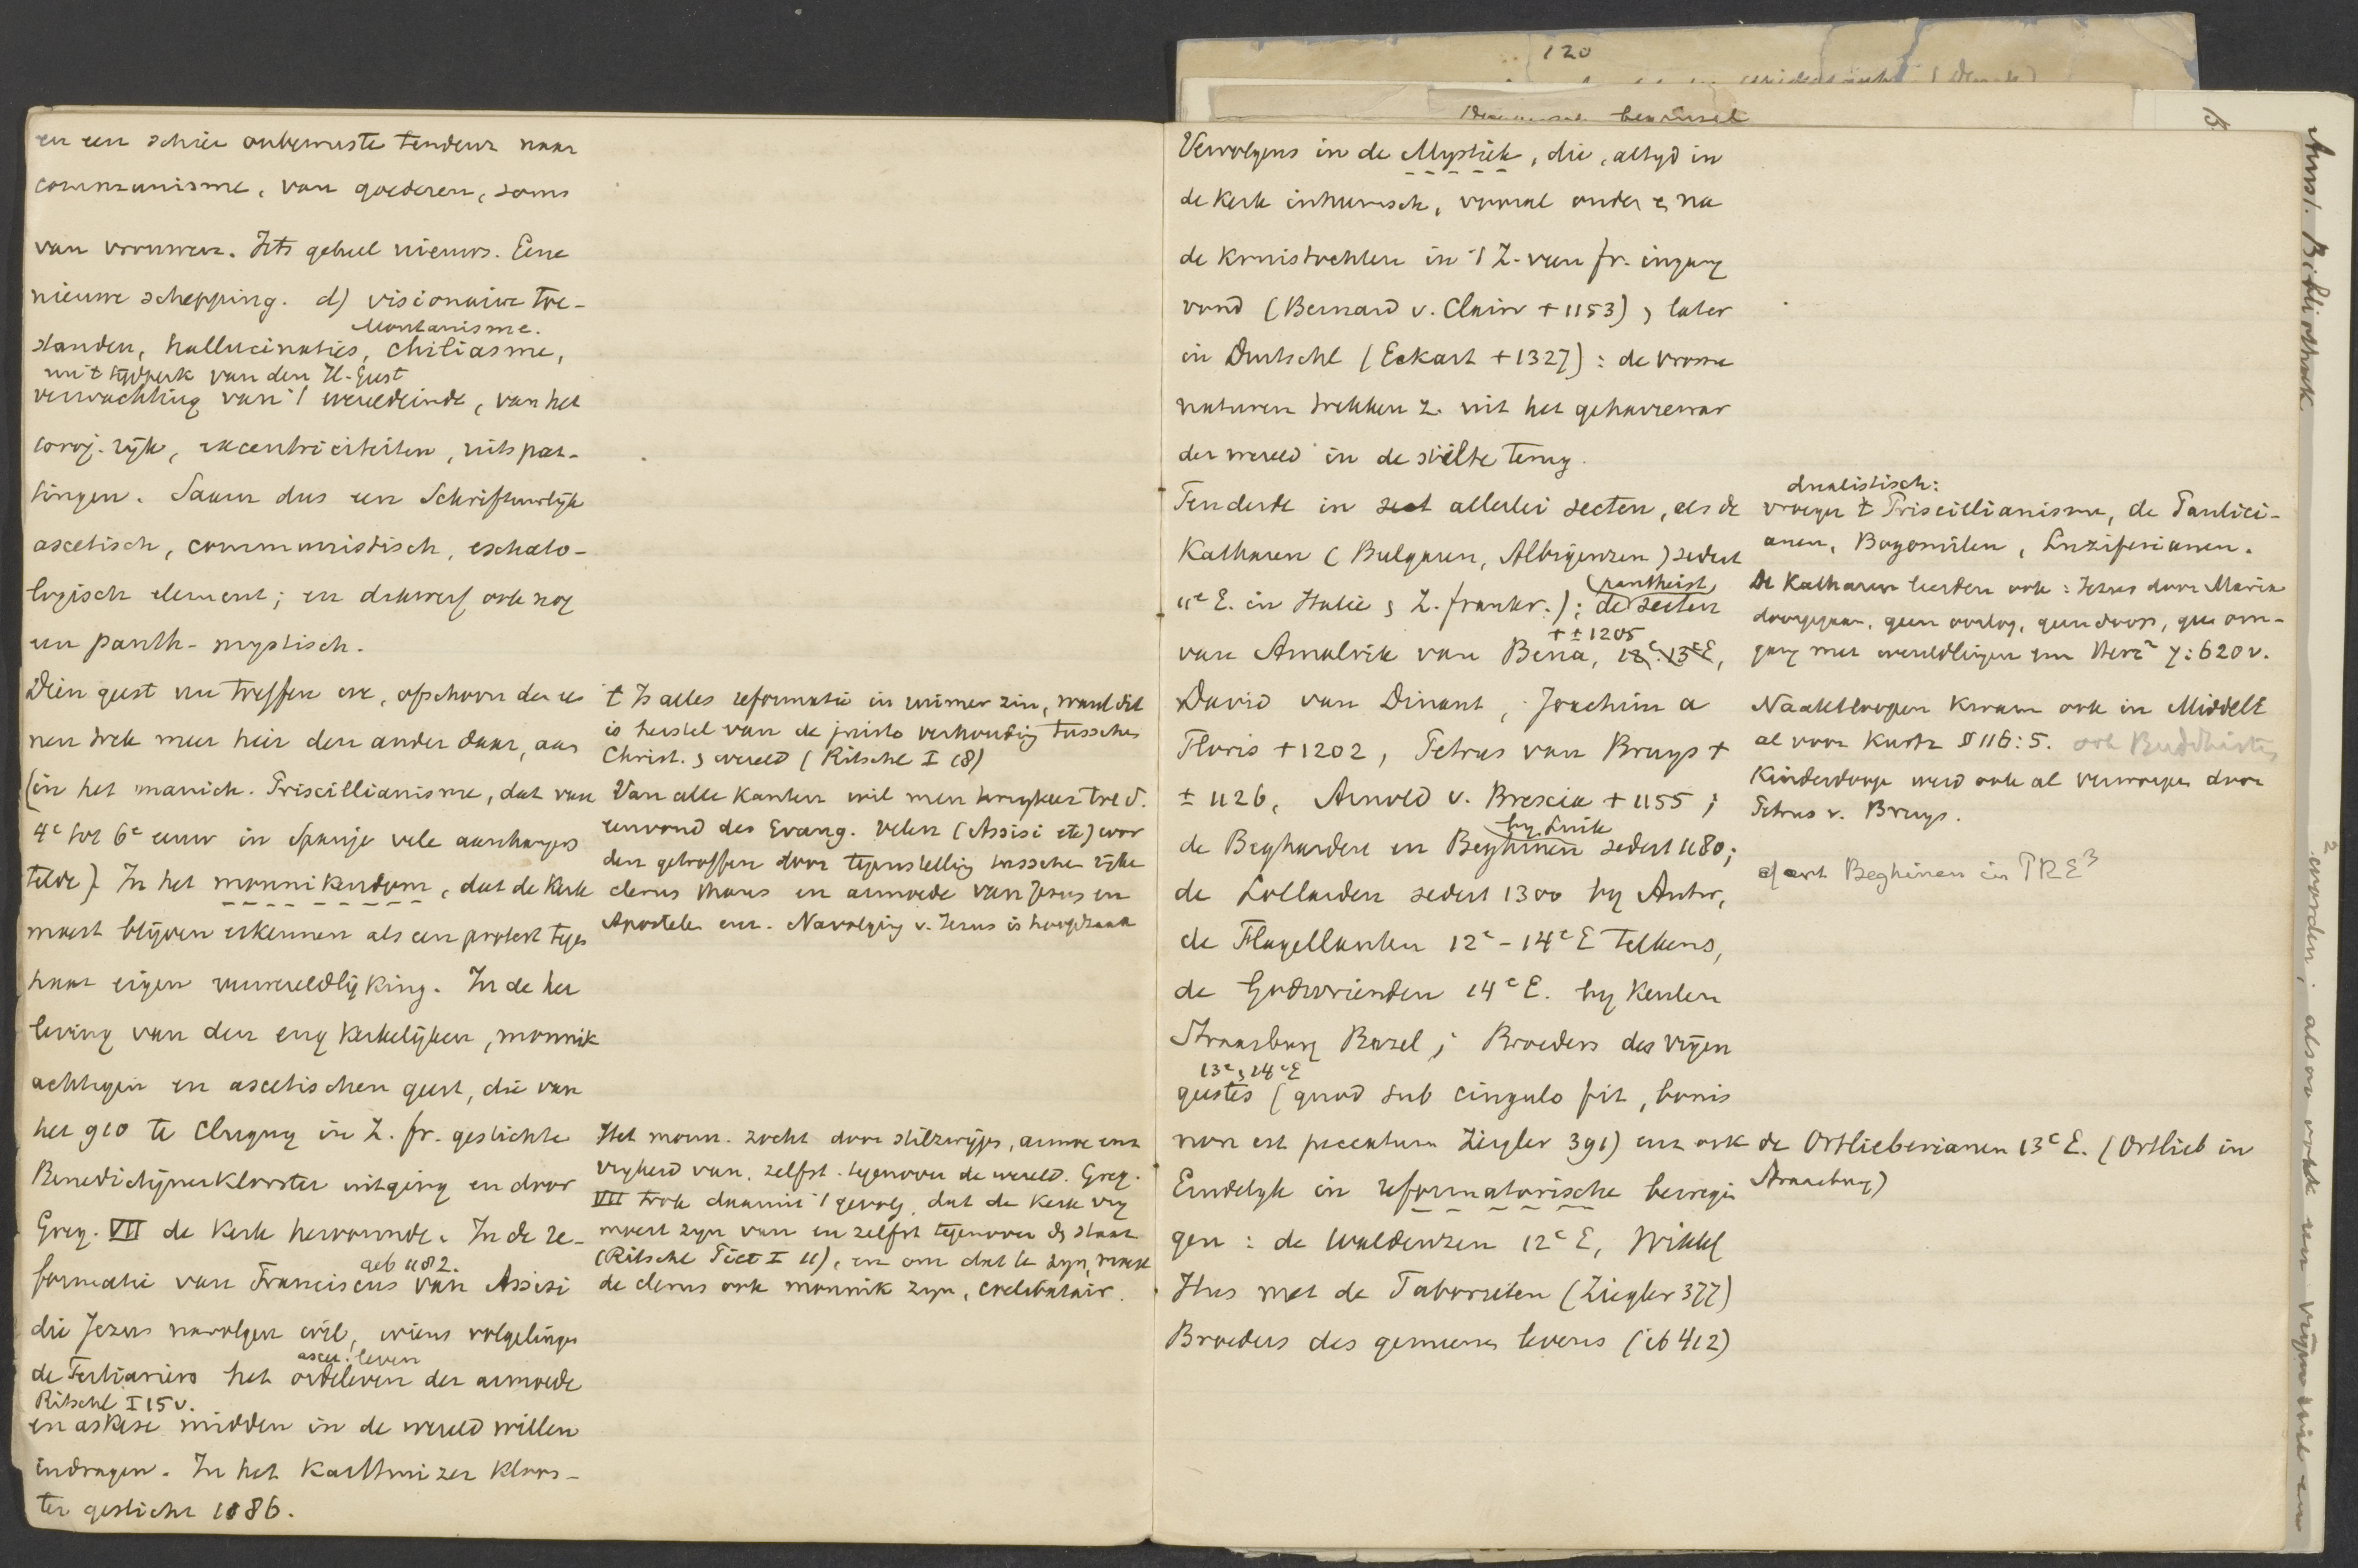 120
en een schier onbewuste tendenz naar
communisme, van goederen, soms
van vrouwen. Iets geheel nieuws. Eene
nieuwe schepping. d) visionaire toe-
Montanisme.
standen, hallucinaties, chiliasme,
uit tijdperk van den H. Geest
verwachting van 't wereldeinde, van het
1000j. rijk, excentriciteiten, uitspat-
tingen. Saam dus een Schriftuurlijk
ascetisch, communistisch, eschato-
logisch element; en dikwerf ook nog
een panth-mystisch.
Dien geest nu treffen we, ofschoon de ee
nen trek meer hier den ander daar, aan
(in het manich. Priscillianisme, dat van
4e tot 6e eeuw in Spanje vele aanhangers
telde). In het monnikendom, dat de kerk
moest blijven erkennen als een protest tegen
haar eigen verwereldlijking. In de her
leving van den eng kerkelijken, monnik
achtigen en ascetischen geest, die van
het 910 te Clugny in Z. Fr. gestichte
Benedictijnerklooster uitging en door
Greg. VII de kerk hervormde. In de re-
geb 1182.
formatie van Franciscus van Assisi
die Jezus navolgen wil, wiens volgelingen
ascet. leven
de Tertiariers het ordeleven der armoede
Ritschl I 15 v.
en askese midden in de wereld willen
indragen. In het Karthuizer kloos-
ter gesticht 1086.
't Is alles reformatie in ruimer zin, want dit
is herstel van de juiste verhouding tusschen
Christ. & wereld (Ritschl I 18)
Van alle kanten wil men terugkeer tot d.
eenvoud des Evang. velen (Assisi etc) wor
den getroffen door tegenstelling tusschen rijke
clerus thans en armoede van Jezus en
Apostelen enz. Navolging v. Jezus is hoofdzaak
Het monn. zocht door stilzwijgen, armoe enz
vrijheid van, zelfst. tegenover de wereld. Greg.
VII trok daaruit 't gevolg, dat de kerk vrij
moest zijn van en zelfst tegenover de staat
(Ritschl Piet I 11), en om dat te zijn, moest
de clerus ook monnik zijn, coelibatair.
Vervolgens in de Mystiek, die, altijd in
de kerk inheemsch, vooral onder & na
de kruistochten in 't Z. van Fr. ingang
vond (Bernard v. Clairv +1153), later
in Duitschl (Eckart +1327): de vrome
naturen trekken z. uit het geharrewar
der wereld in de stilte terug.
Tenderde in allerlei secten, als de
Katharen (Bulgaren, Albigenzen) sedert
(pantheist)
11e E. in Italie & Z. Frankr.); de secten
+ ± 1205
van Amalrik van Bena, 12e. 13eE,
David van Dinant, Joachim a
Floris +1202, Petrus van Bruys +
± 1126, Arnold v. Brescia +1155;
by Luik
de Begharden en Beghinen sedert 1180;
de Lollarden sedert 1300 by Antw,
de Flagellanten 12e-14e E telkens,
de Godsvrienden 14e E. by Keulen
Straasburg Bazel; Broeders des vrijen
13e, 14e E
geestes (quod sub cingulo fit, bonis
non est peccatum Ziegler 391) enz ook
Eindelyk in reformatorische bewegin
gen: de Waldenzen 12e E, Wiklif
Hus met de Taborieten (Ziegler 377)
Broeders des gemeenen levens (ib 412)
dualistisch:
vroeger 't Priscillianisme, de Paulici-
anen, Bogomilen, Luziferianen.
De Katharen leerden ook: Jezus door Maria
doorgegaan, geen oorlog, geen doop, geen om-
gang met wereldlingen enz Herz2 7:620v.
Naaktloopen kwam ook in Middelt
al voor Kurtz § 116:5. ook Buddhisten
Kinderdoop werd ook al verworpen door
Petrus v. Bruys.
cf art Beghinen in PRE3
de Ortlieberianen 13e E. (Ortlieb in
Straasburg)